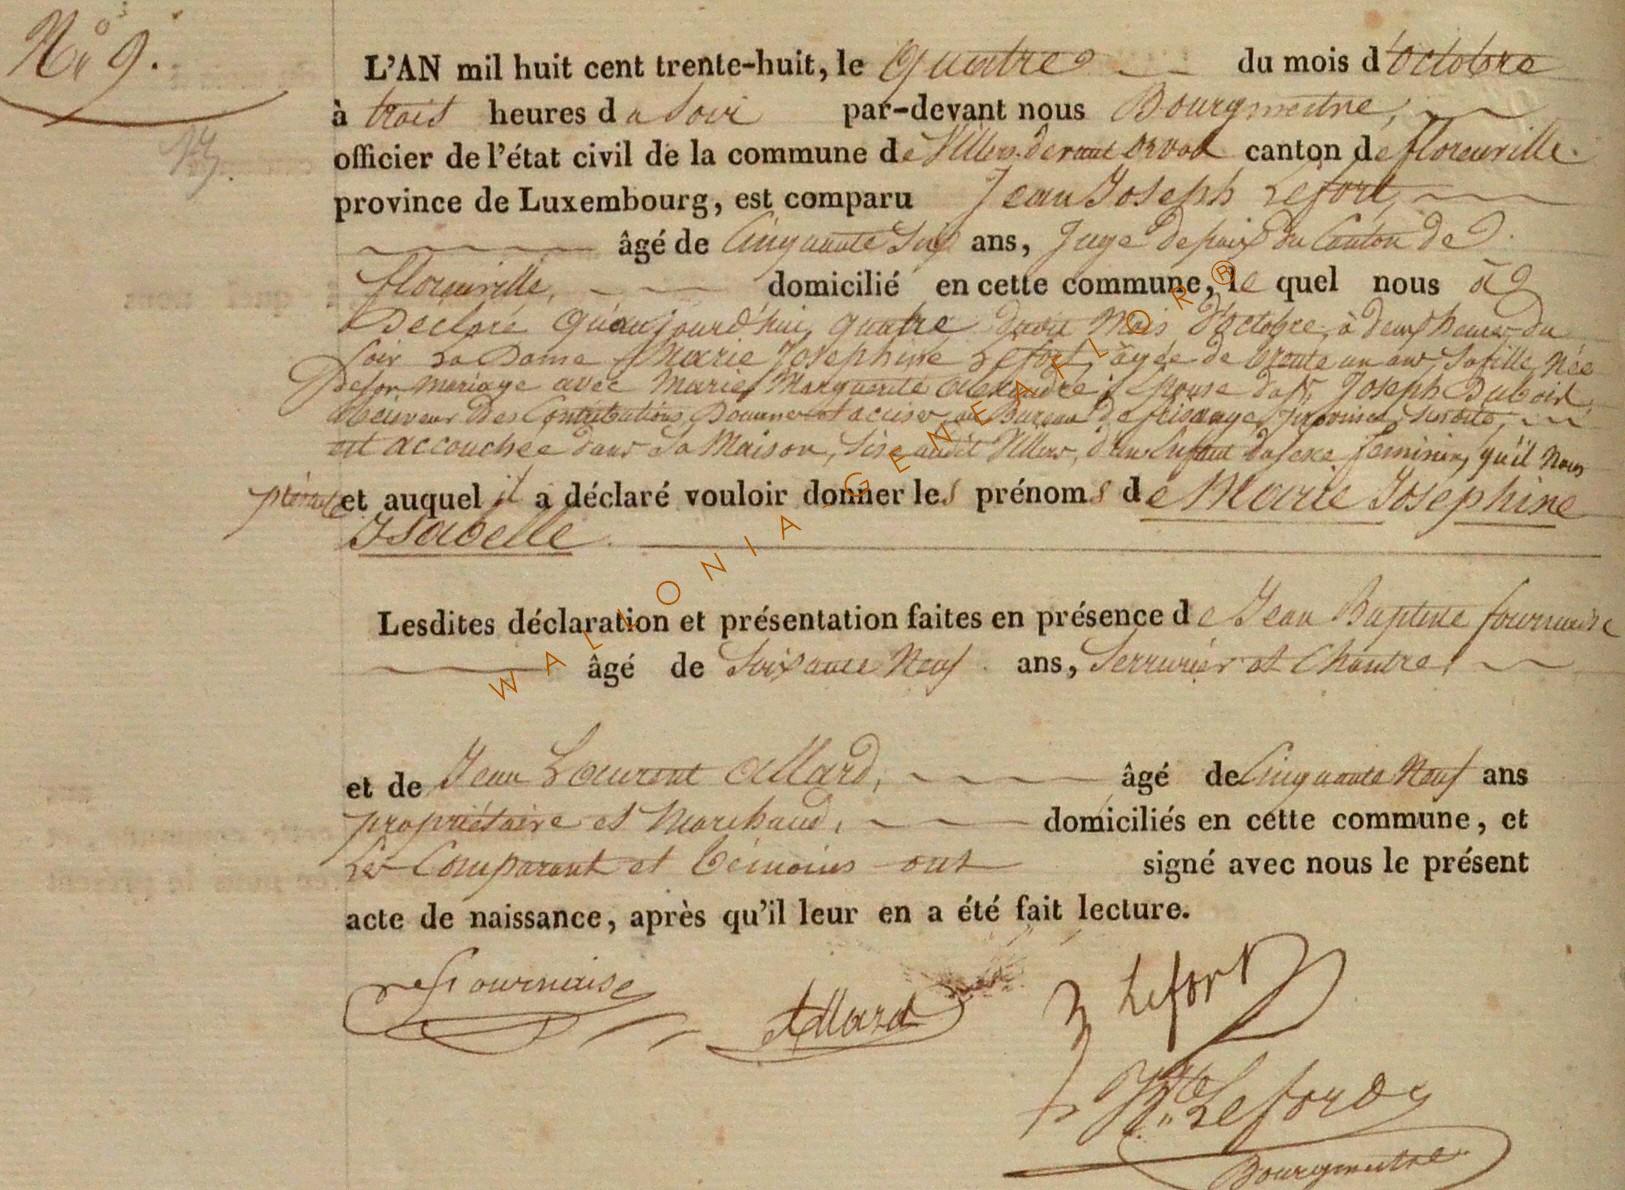 No. 9.
L'AN mil huit cent trente-huit, le Quatre du mois d'Octobre
à trois heures du Soir par-devant nous Bourgmestre,
officier de l'état civil de la commune de Villers devant orval canton de florenville.
province de Luxembourg, est comparu Jean Joseph Lefort,
âgé de Cinquante Six ans, Juge de paix du Canton de
florenville, domicilié en cette commune, le quel nous à
Déclaré Qu'aujourd'hui, quatre Mois d'Octobre, à deux heures du
Soir La Dame Marie Josephine Lefort, âgée de trente un ans, Sa fille, Née
de son mariage avec Marie Marguerite Alexandre, Epouse de Joseph Dubois,
Receveur Des Contributions, Douanes et accises, au Bureau de
est accouchée dans Sa Maison, Sise audit Villers, d'un Enfant du sexe feminin, qu'il Nous
présente et auquel il a déclaré vouloir donner les prénoms de Marie Josephine
Isabelle.
Lesdites déclaration et présentation faites en présence de Jean Baptiste fournaise
âgé de Soixante Neuf ans, Serrurier et Chantre,
et de Jean Laurent Allard, âgé de Cinquante Neuf ans
propriétaire et Marchand, domiciliés en cette commune, et
Les Comparant et témoins ont signé avec nous le présent
acte de naissance, après qu'il leur en a été fait lecture.
Fournaise
Allard
Lefort
Lefort
Bourgmestre
WALLONIA GENEAFLOR®